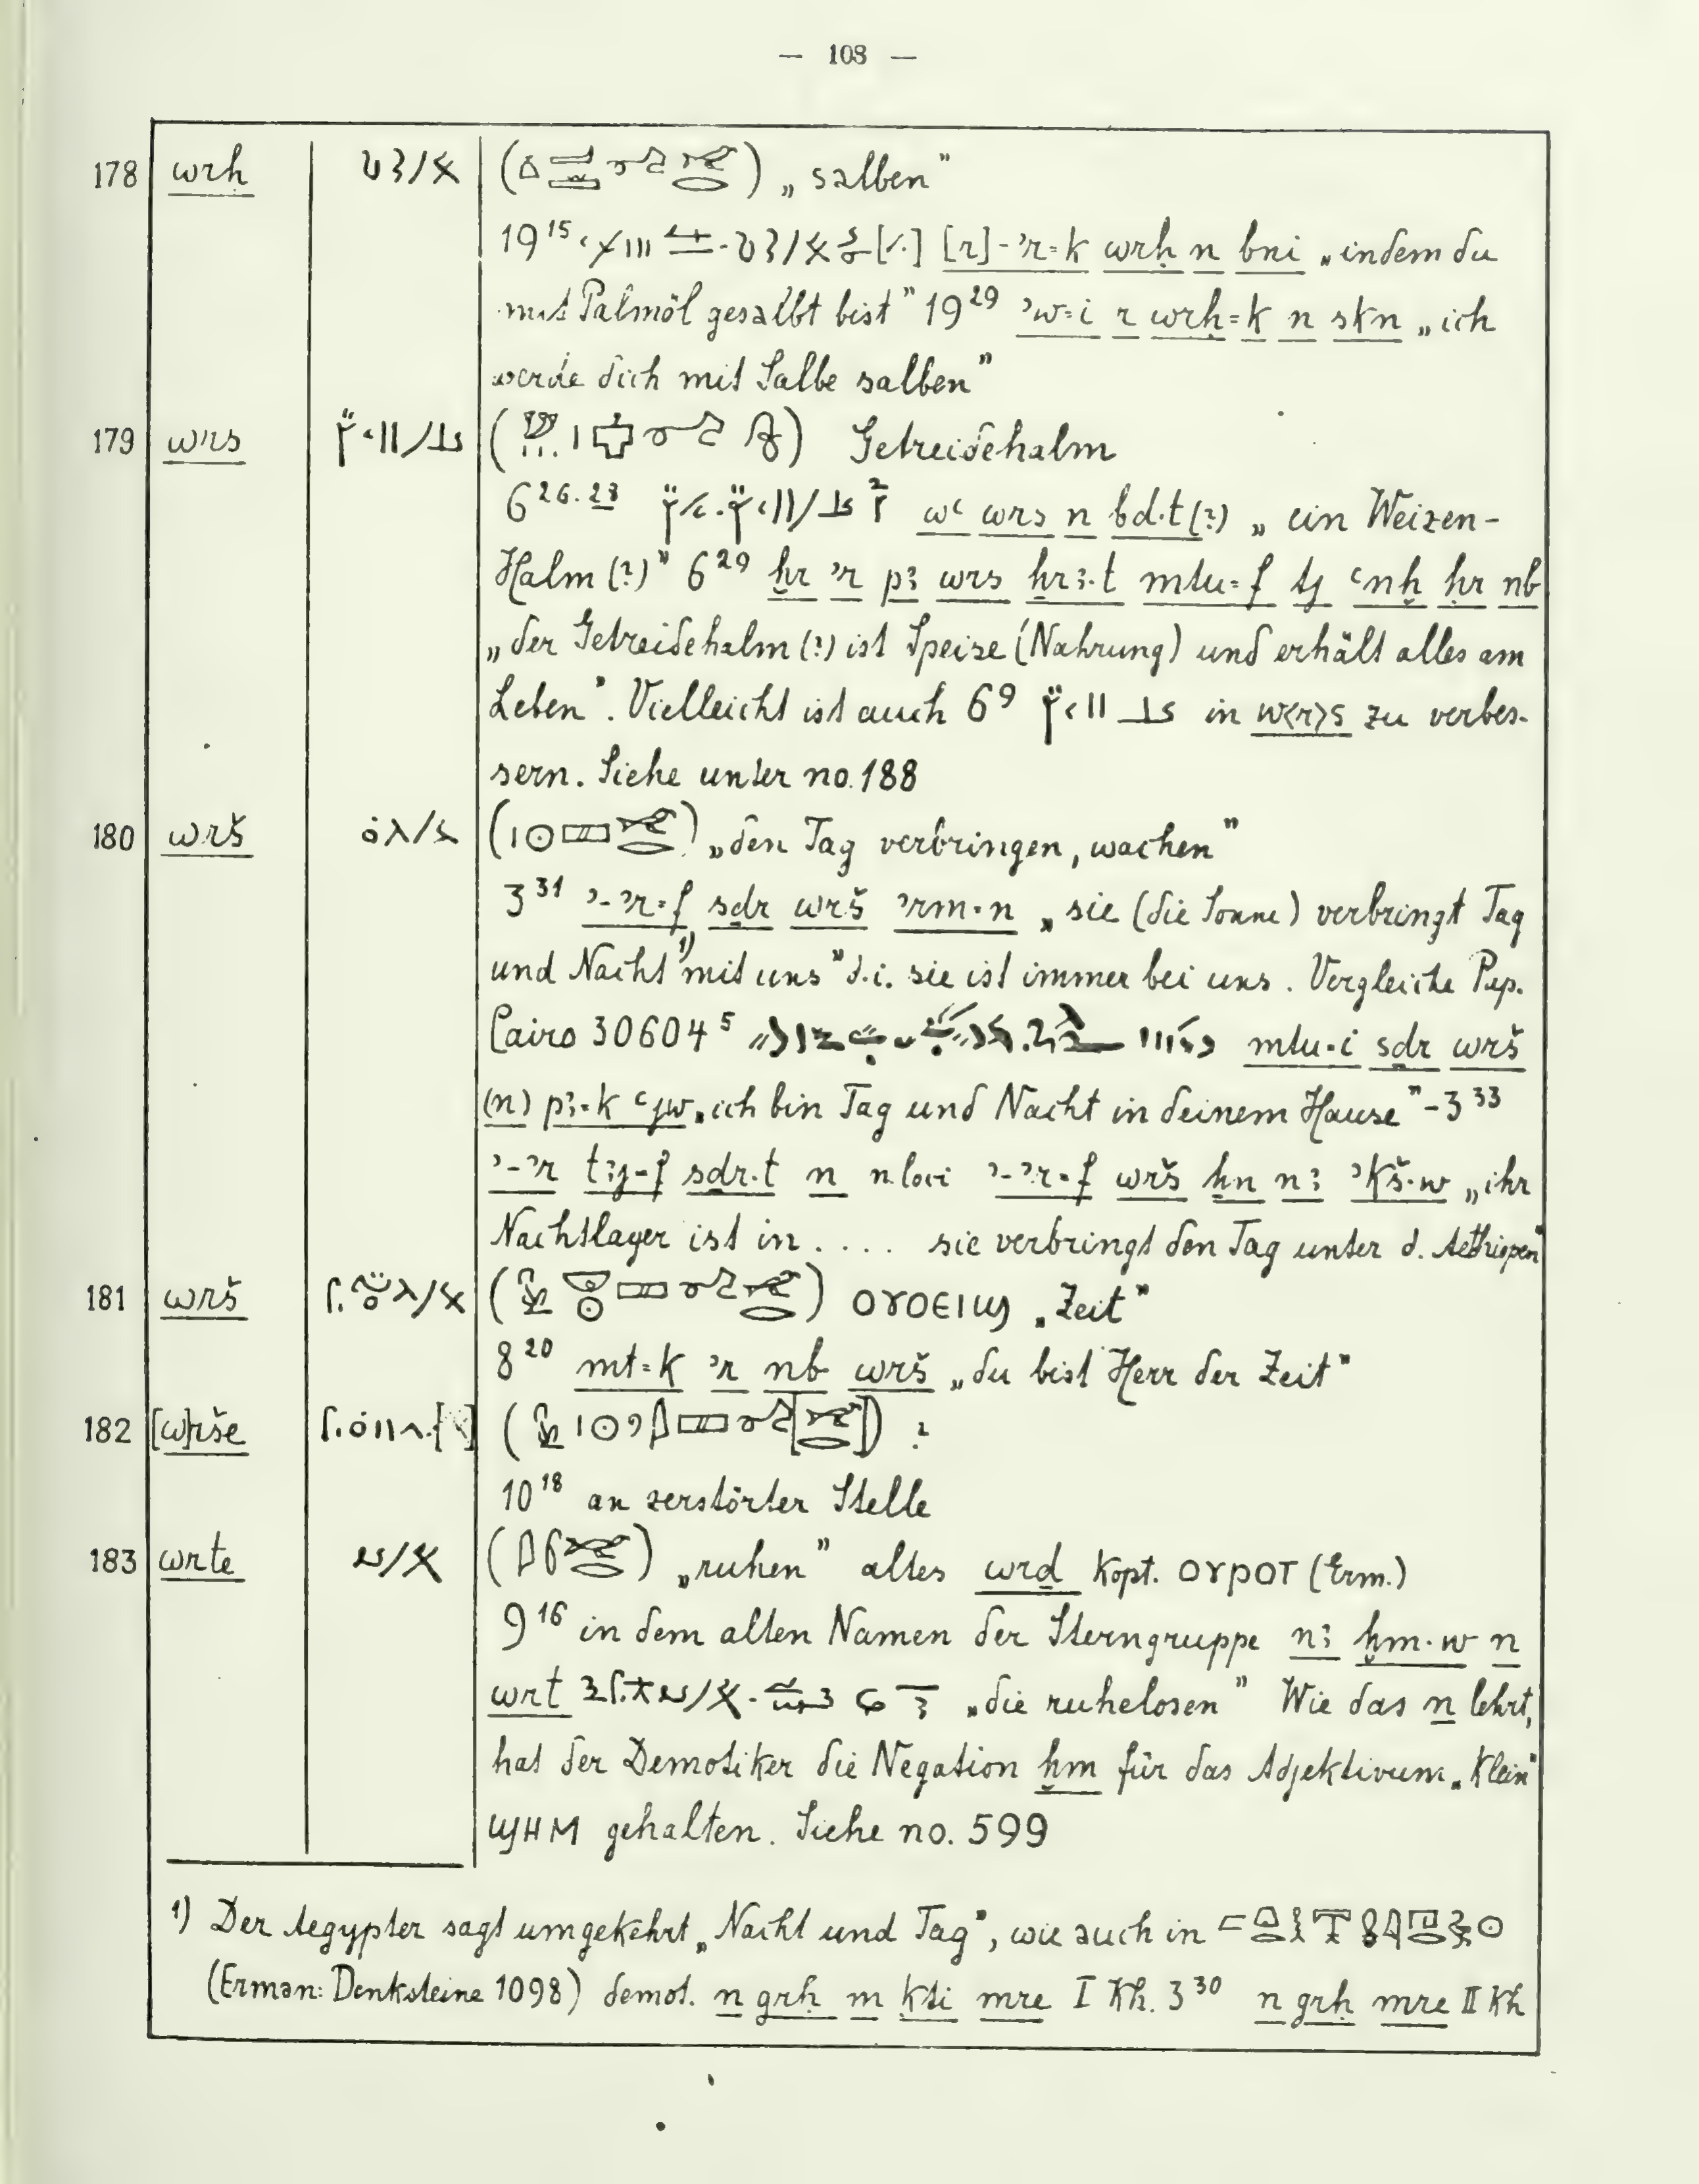 — 108 —
178 wrḥ ( ) „salben"
19¹⁵ [r]-ʾr=k wrḥ n bni „indem du
mit Palmöl gesalbt bist" 19²⁹ ʾw=i r wrḥ=k n skn „ich
werde dich mit Salbe salben"
179 wrs ( ) Getreidehalm
6²⁶·²⁸ wʿ wrs n bd·t(?) „ein Weizen-
Halm (?)" 6²⁹ ḫr ʾr pꜣ wrs ḫrꜣ·t mtu=f tj ʿnḫ ḥr nb
„der Getreidehalm (?) ist Speise (Nahrung) und erhält alles am
Leben". Vielleicht ist auch 6⁹ in w<r>s zu verbes-
sern. Siehe unter no. 188
180 wrš ( ) „den Tag verbringen, wachen"
3³¹ ʾ-ʾr=f sḏr wrš ʾrm=n „sie (die Sonne) verbringt Tag
und Nacht ¹) mit uns" d.i. sie ist immer bei uns. Vergleiche Pap.
Cairo 30604⁵ mtu=i sḏr wrš
(n) pꜣ=k ʿjw „ich bin Tag und Nacht in deinem Hause" – 3³³
ʾ-ʾr tꜣj=f sḏr·t n n loci ʾ-ʾr=f wrš ḫn nꜣ ʾKš·w „ihr
Nachtlager ist in .... sie verbringt den Tag unter d. Aethiopen"
181 wrš ( ) ⲟⲩⲟⲉⲓϣ „Zeit"
8²⁰ mt=k ʾr nb wrš „du bist Herr der Zeit"
182 [w]rše ( ) ?
10¹⁸ an zerstörter Stelle
183 wrte ( ) „ruhen" altes wrḏ kopt. ⲟⲩⲣⲟⲧ (Erm.)
9¹⁶ in dem alten Namen der Sterngruppe nꜣ ḫm·w n
wrt „die ruhelosen" Wie das n lehrt,
hat der Demotiker die Negation ḫm für das Adjektivum „Klein"
ϣⲏⲙ gehalten. Siehe no. 599
¹) Der Aegypter sagt umgekehrt „Nacht und Tag", wie auch in
(Erman: Denksteine 1098) demot. n grḥ m ḳti mre I Kh. 3³⁰ n grḥ mre II Kh